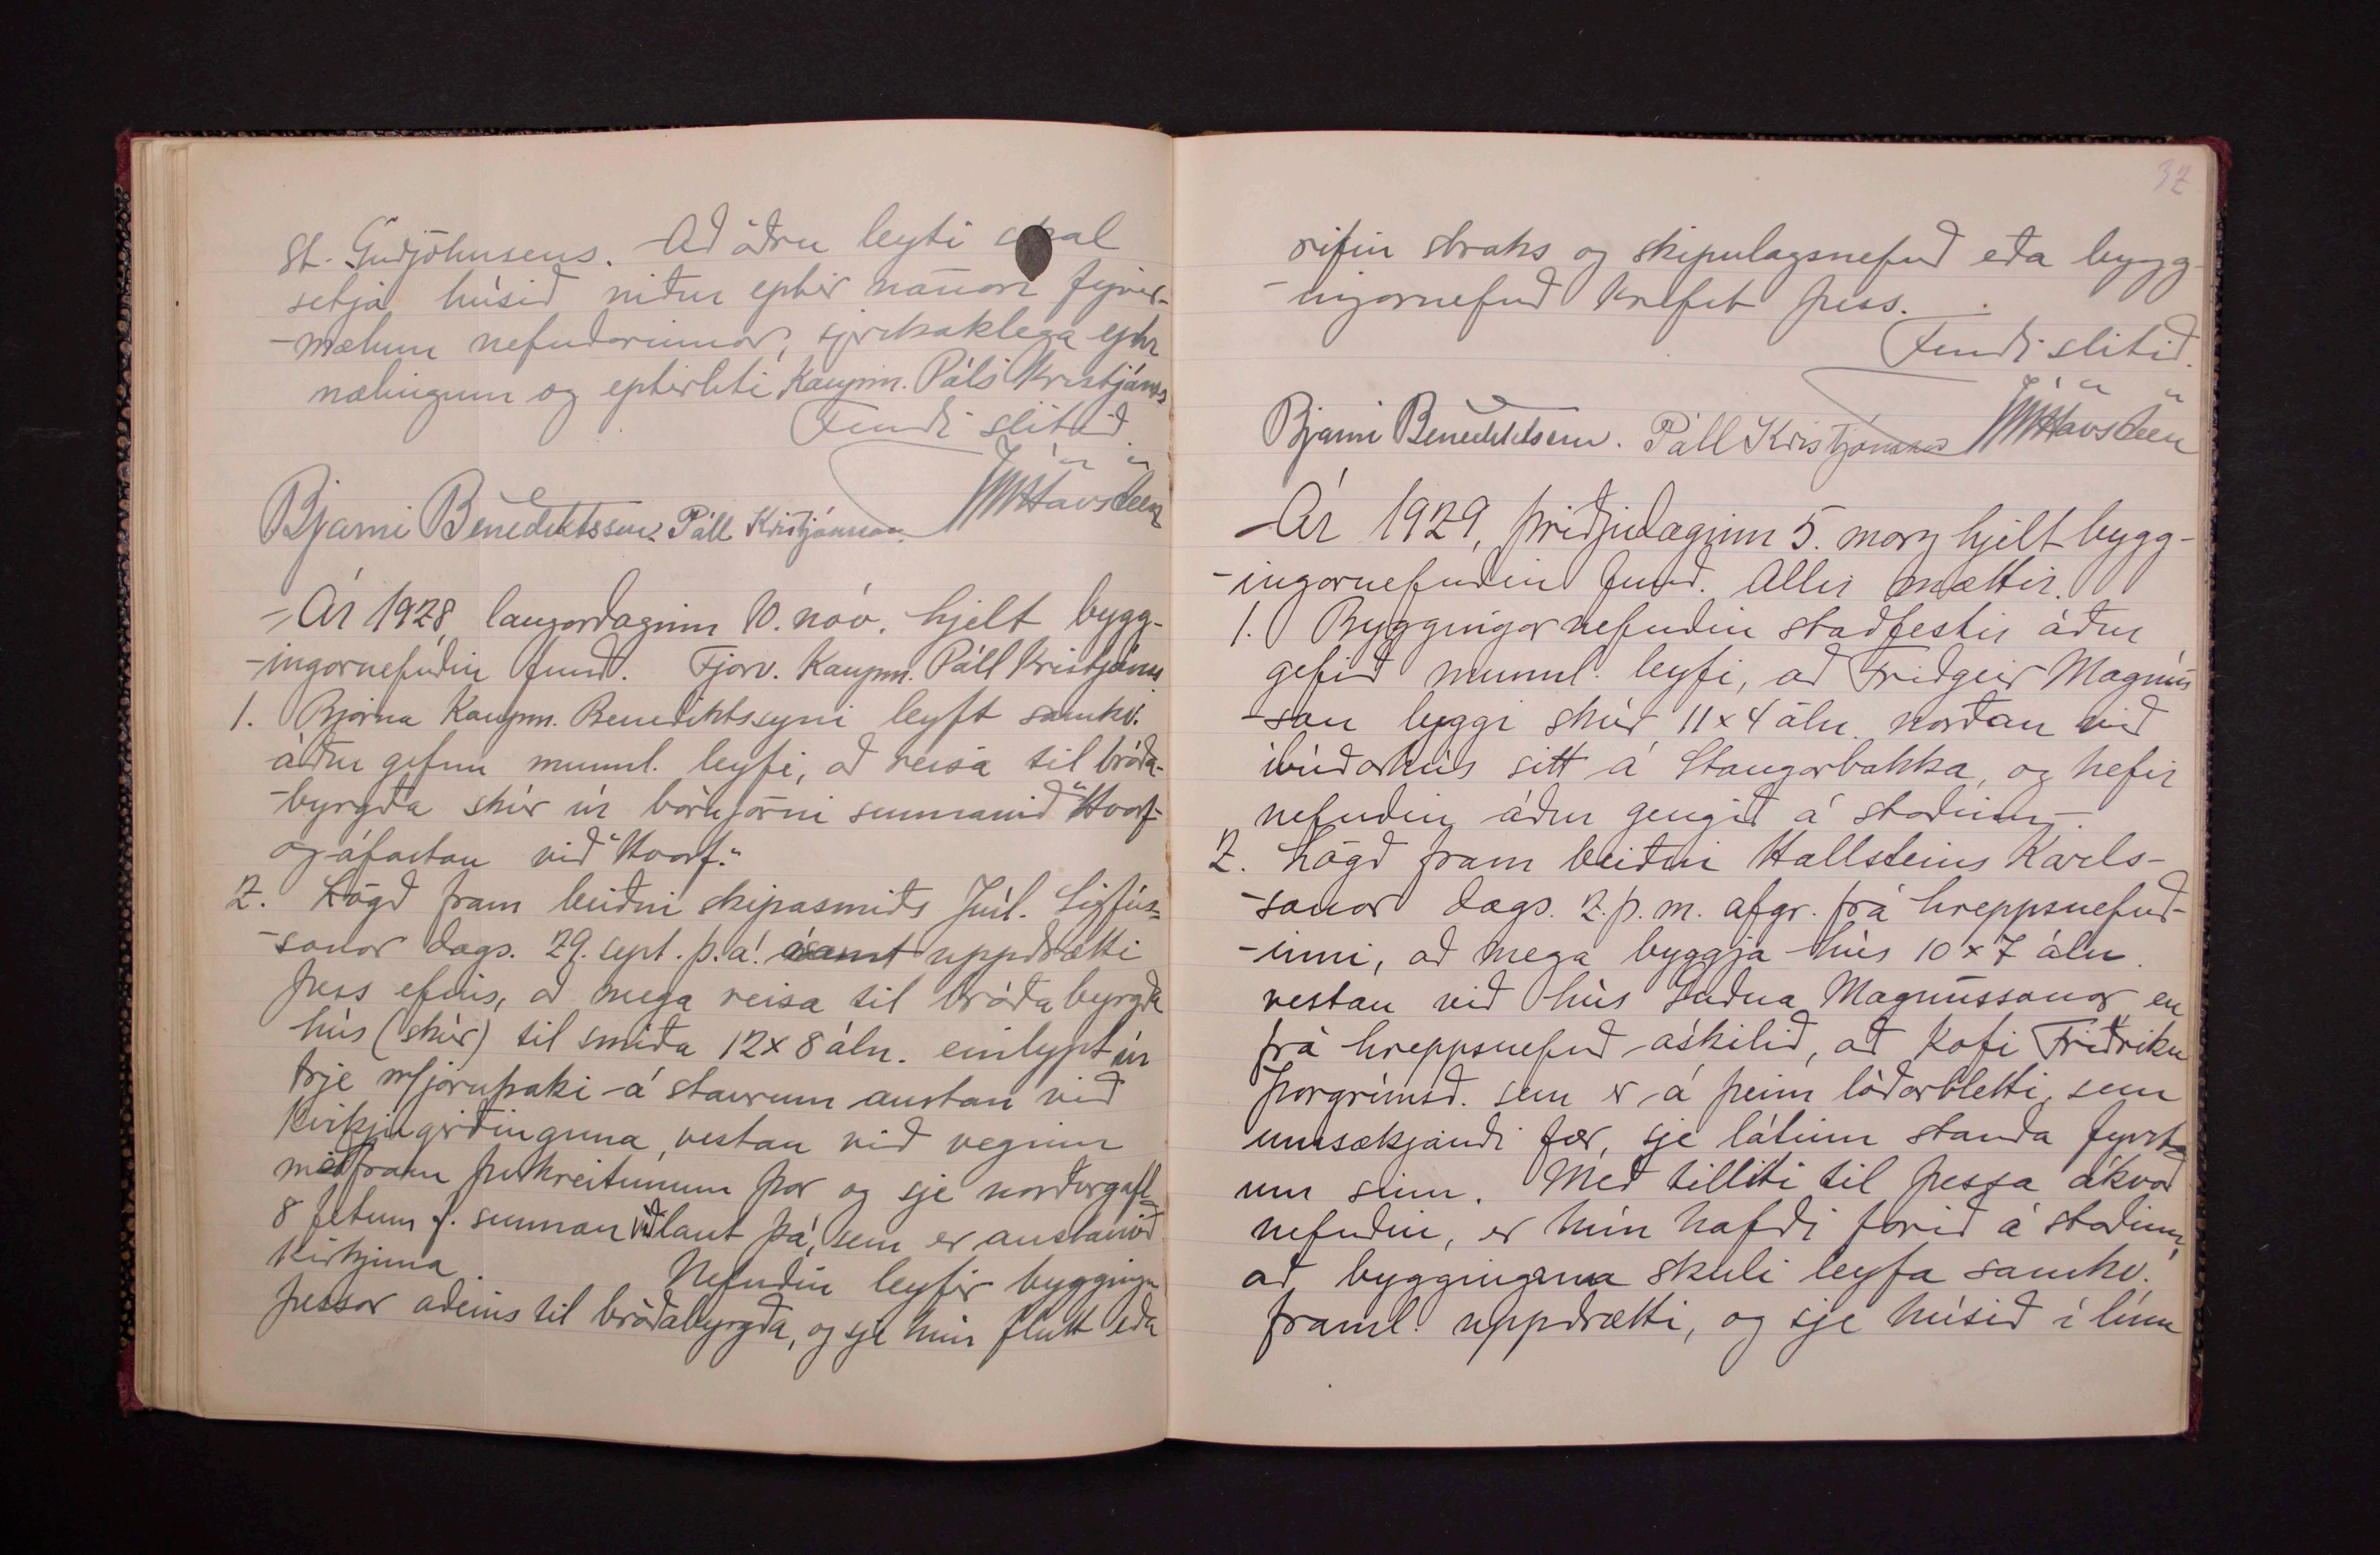 St. Guðjohnsens. Að öðru leyti skal
setja húsið niður eptir nánari fyrir-
-mælum nefndarinnar, sjerstaklega eptir
mælingum og eptirliti Kaupm. Páls Kristjánss
Fundi slitið.
Bjarni Benediktsson. Páll Kristjánsson. JúlHavsteen
Ár 1928, laugardaginn 10. nóv. hjelt bygg-
-ingarnefndin fund. Fjarv. Kaupm. Páll Kristjánss
1. Bjarna Kaupm. Benediktssyni leyft samkv.
áður gefnu munnl. leyfi, að reisa til bráða-
-byrgða skúr úr bárujárni sunnanvið "Hvarf"
og áfastan við "Hvarf."
2. Lögð fram beiðni skipasmiðs Júl. Sigfús-
-sonar dags. 29. sept. þ.á. ásamt uppdrætti
þess efnis, að mega reisa til bráðabyrgða
hús (skúr) til smíða 12x8 áln. einlypt úr
trje m/járnþaki á staurum austan við
Kirkjugirðinguna, vestan við veginn
meðfram fiskreitunum þar og sje norðurgafl
8 fetum f. sunnan við laut þá, sem er austanvið
Kirkjuna. Nefndin leyfir byggingu
þessar aðeins til bráðabyrgða, og sje hún flutt eða
32
rifin straks og skipulagsnefnd eða bygg-
-ingarnefnd krefst þess.
Fundi slitið.
Bjarni Benediktsson. Páll Kristjánsson JúlHavsteen
Ár 1929, þriðjudaginn 5. marz hjelt bygg-
-ingarnefndin fund. Allir mættir.
1. Byggingarnefndin staðfestir áður
gefið munnl. leyfi, að Friðgeir Magnús-
-son byggi skúr 11x4 áln. norðan við
íbúðarhús sitt á Stangarbakka, og hefir
nefndin áður gengið á staðinn.
2. Lögð fram beiðni Hallsteins Karls-
-sonar dags. 2. þ.m. afgr. frá hreppsnefnd-
-inni, að mega byggja hús 10x7 áln.
vestan við hús Guðna Magnússonar, en
frá hreppsnefnd áskilið, að Kofi Friðriku
Þorgrímsd. sem er á þeim lóðarbletti, sem
umsækjandi fær, sje látinn standa fyrst
um sinn. Með tilliti til þessa ákvað
nefndin, er hún hafði farið á staðinn,
að bygginguna skuli leyfa samkv.
framl. uppdrætti, og sje húsið í línu